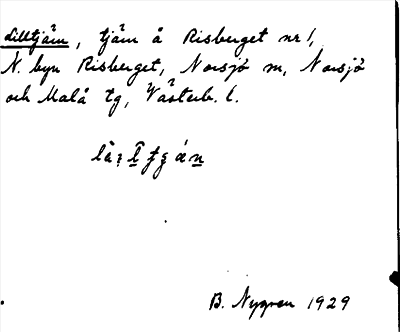 Lilltjärn, tjärn å Risberget nr 1,
N. byn Risberget, Norsjö sn, Norsjö
och Malå tg, Västerb. l.
B. Nygren 1929